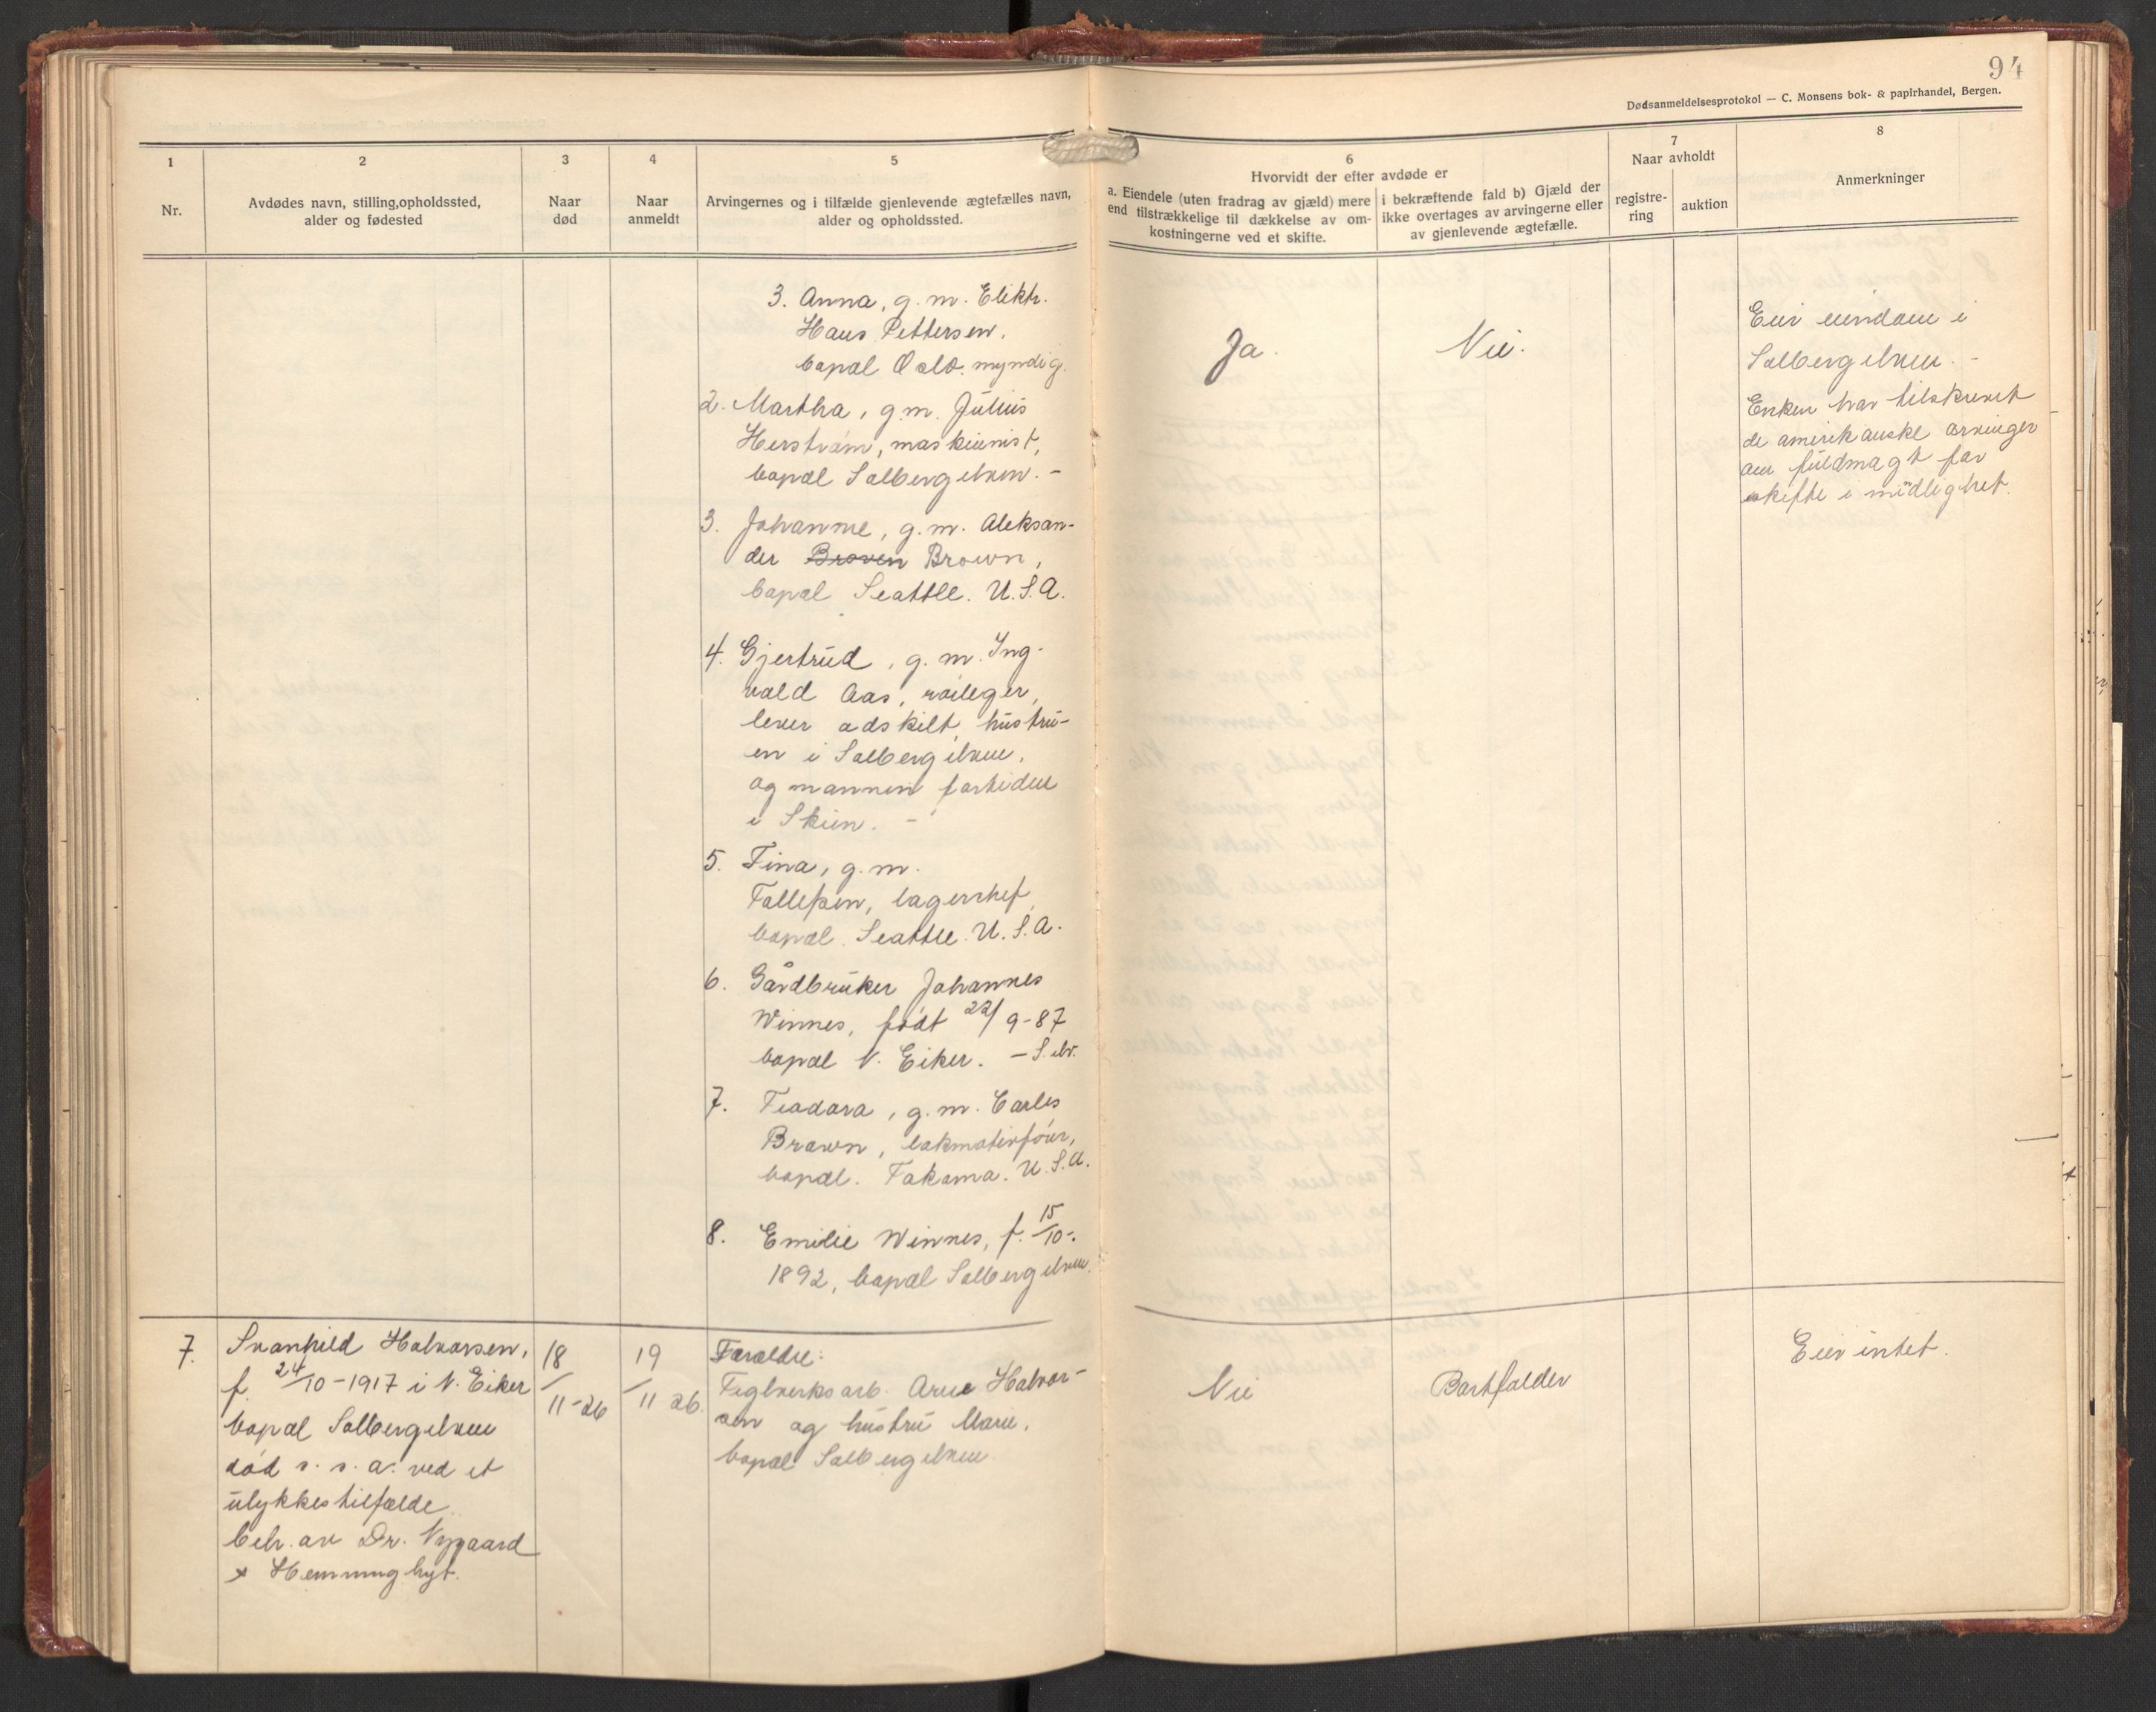 94
Dødsanmeldelsesprotokol — C. Monsens bok- & papirhandel, Bergen.
1
Nr.
2
Avdødes navn, stilling, opholdssted,
alder og fødested
3
Naar
død
4
Naar
anmeldt
5
Arvingernes og i tilfælde gjenlevende ægtefælles navn,
alder og opholdssted.
6
Hvorvidt der efter avdøde er
a. Eiendele (uten fradrag av gjæld) mere
end tilstrækkelige til dækkelse av om-
kostningerne ved et skifte.
i bekræftende fald b) Gjæld der
ikke overtages av arvingerne eller
av gjenlevende ægtefælle.
7
Naar avholdt
registre-
ring
auktion
8
Anmerkninger
3. Anna, g. m. Elektr.
Hans Pettersen,
bopæl Oslo. myndig.
2. Martha, g. m. Julius
Herstrøm, maskinist,
bopæl Solbergelven. -
3. Johanne, g. m. Aleksan-
der Broven Brown,
bopæl Seattle. U.S.A.
4. Gjertrud, g. m. Ing-
vald Aas,
lever adskilt, hustru-
en i Solbergelven,
og mannen fortiden
i Skien. -
5. Tina, g. m.
Tollefsen, lagerchef,
bopæl. Seattle. U.S.A.
6. Gårdbruker Johannes
Winnes, født 22/9-87
bopæl N. Eiker. - S. elv.
7. Teodora, g. m. Carles
Brown, lokmotivfører,
bopæl. Takoma. U.S.A.
8. Emilie Winnes, f. 15/10-
1892, bopæl Solbergelven.
Ja.
Nei.
Eier eiendom i
Solbergelven. -
Enken har tilskrevet
de amerikanske arvinger
om fuldmagt for
skifte i mindelighet.
7. Svanhild Halvorsen,
f. 24/10-1917 i N. Eiker
bopæl Solbergelven
død s. s. a. ved et
ulykkestilfælde.
beh. av Dr. Nygaard
x Hemminghyt.
18/11-26
19/11 26.
Forældre:
Teglverksarb. Arne Halvor-
sen og hustru Marie,
bopæl Solbergelven
Nei
Bortfalder
Eier intet.